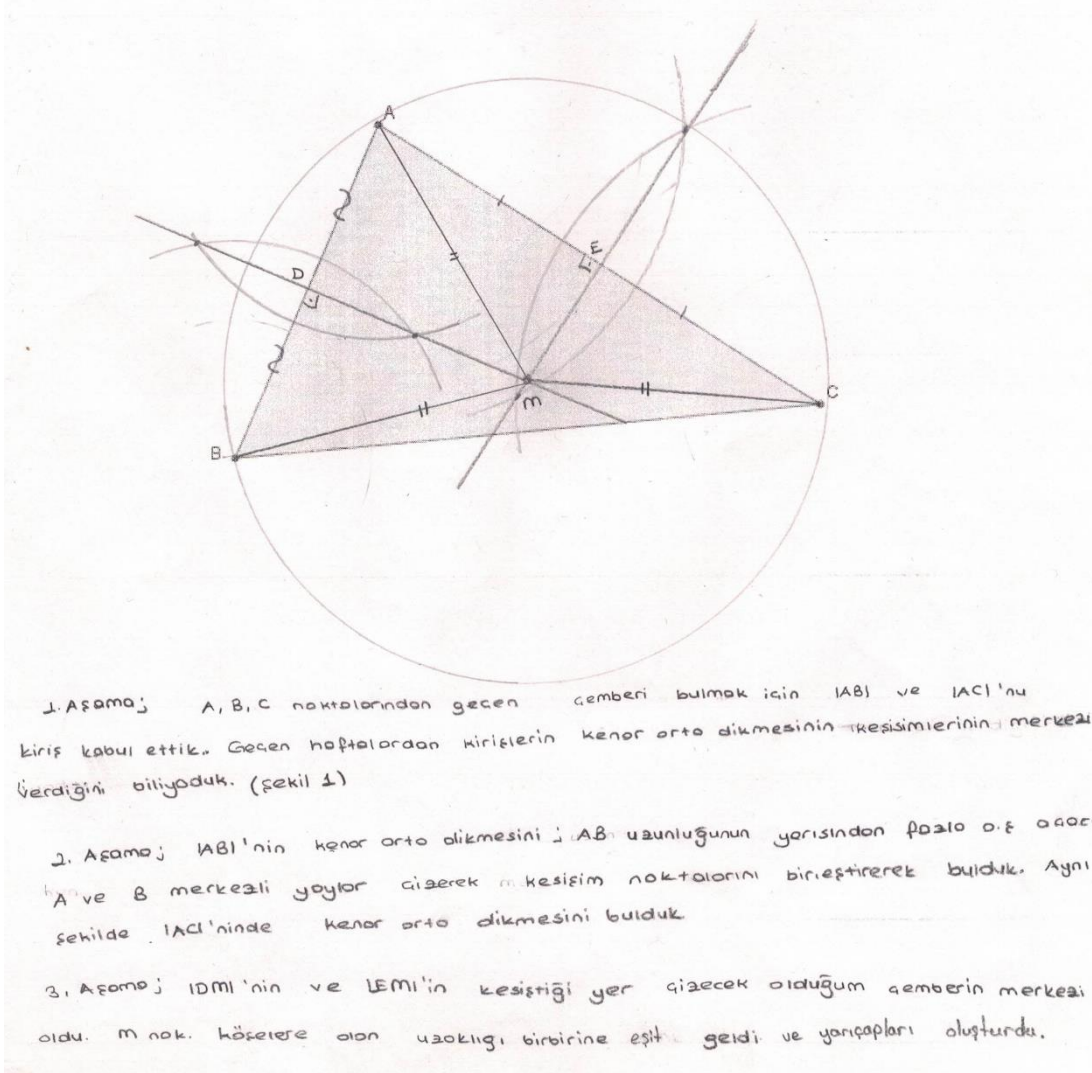 A
E
D
M
C
B
1. Aşama; A, B, C noktalarından geçen çemberi bulmak için |AB| ve |AC|'nu
kiriş kabul ettik.. Geçen haftalardan kirişlerin kenar orta dikmesinin kesişimlerinin merkezi
verdiğini biliyoduk. (Şekil 1)
2. Aşama; |AB|'nin kenar orta dikmesini; AB uzunluğunun yarısından fazla a.ş açar
A ve B merkezli yaylar çizerek kesişim noktalarını birleştirerek bulduk. Aynı
şekilde |AC|'ninde kenar orta dikmesini bulduk
3. Aşama; |DM|'nin ve |EM|'in kesiştiği yer çizecek olduğum çemberin merkezi
oldu. M nok. köşelere olan uzaklığı birbirine eşit geldi ve yarıçapları oluşturdu.